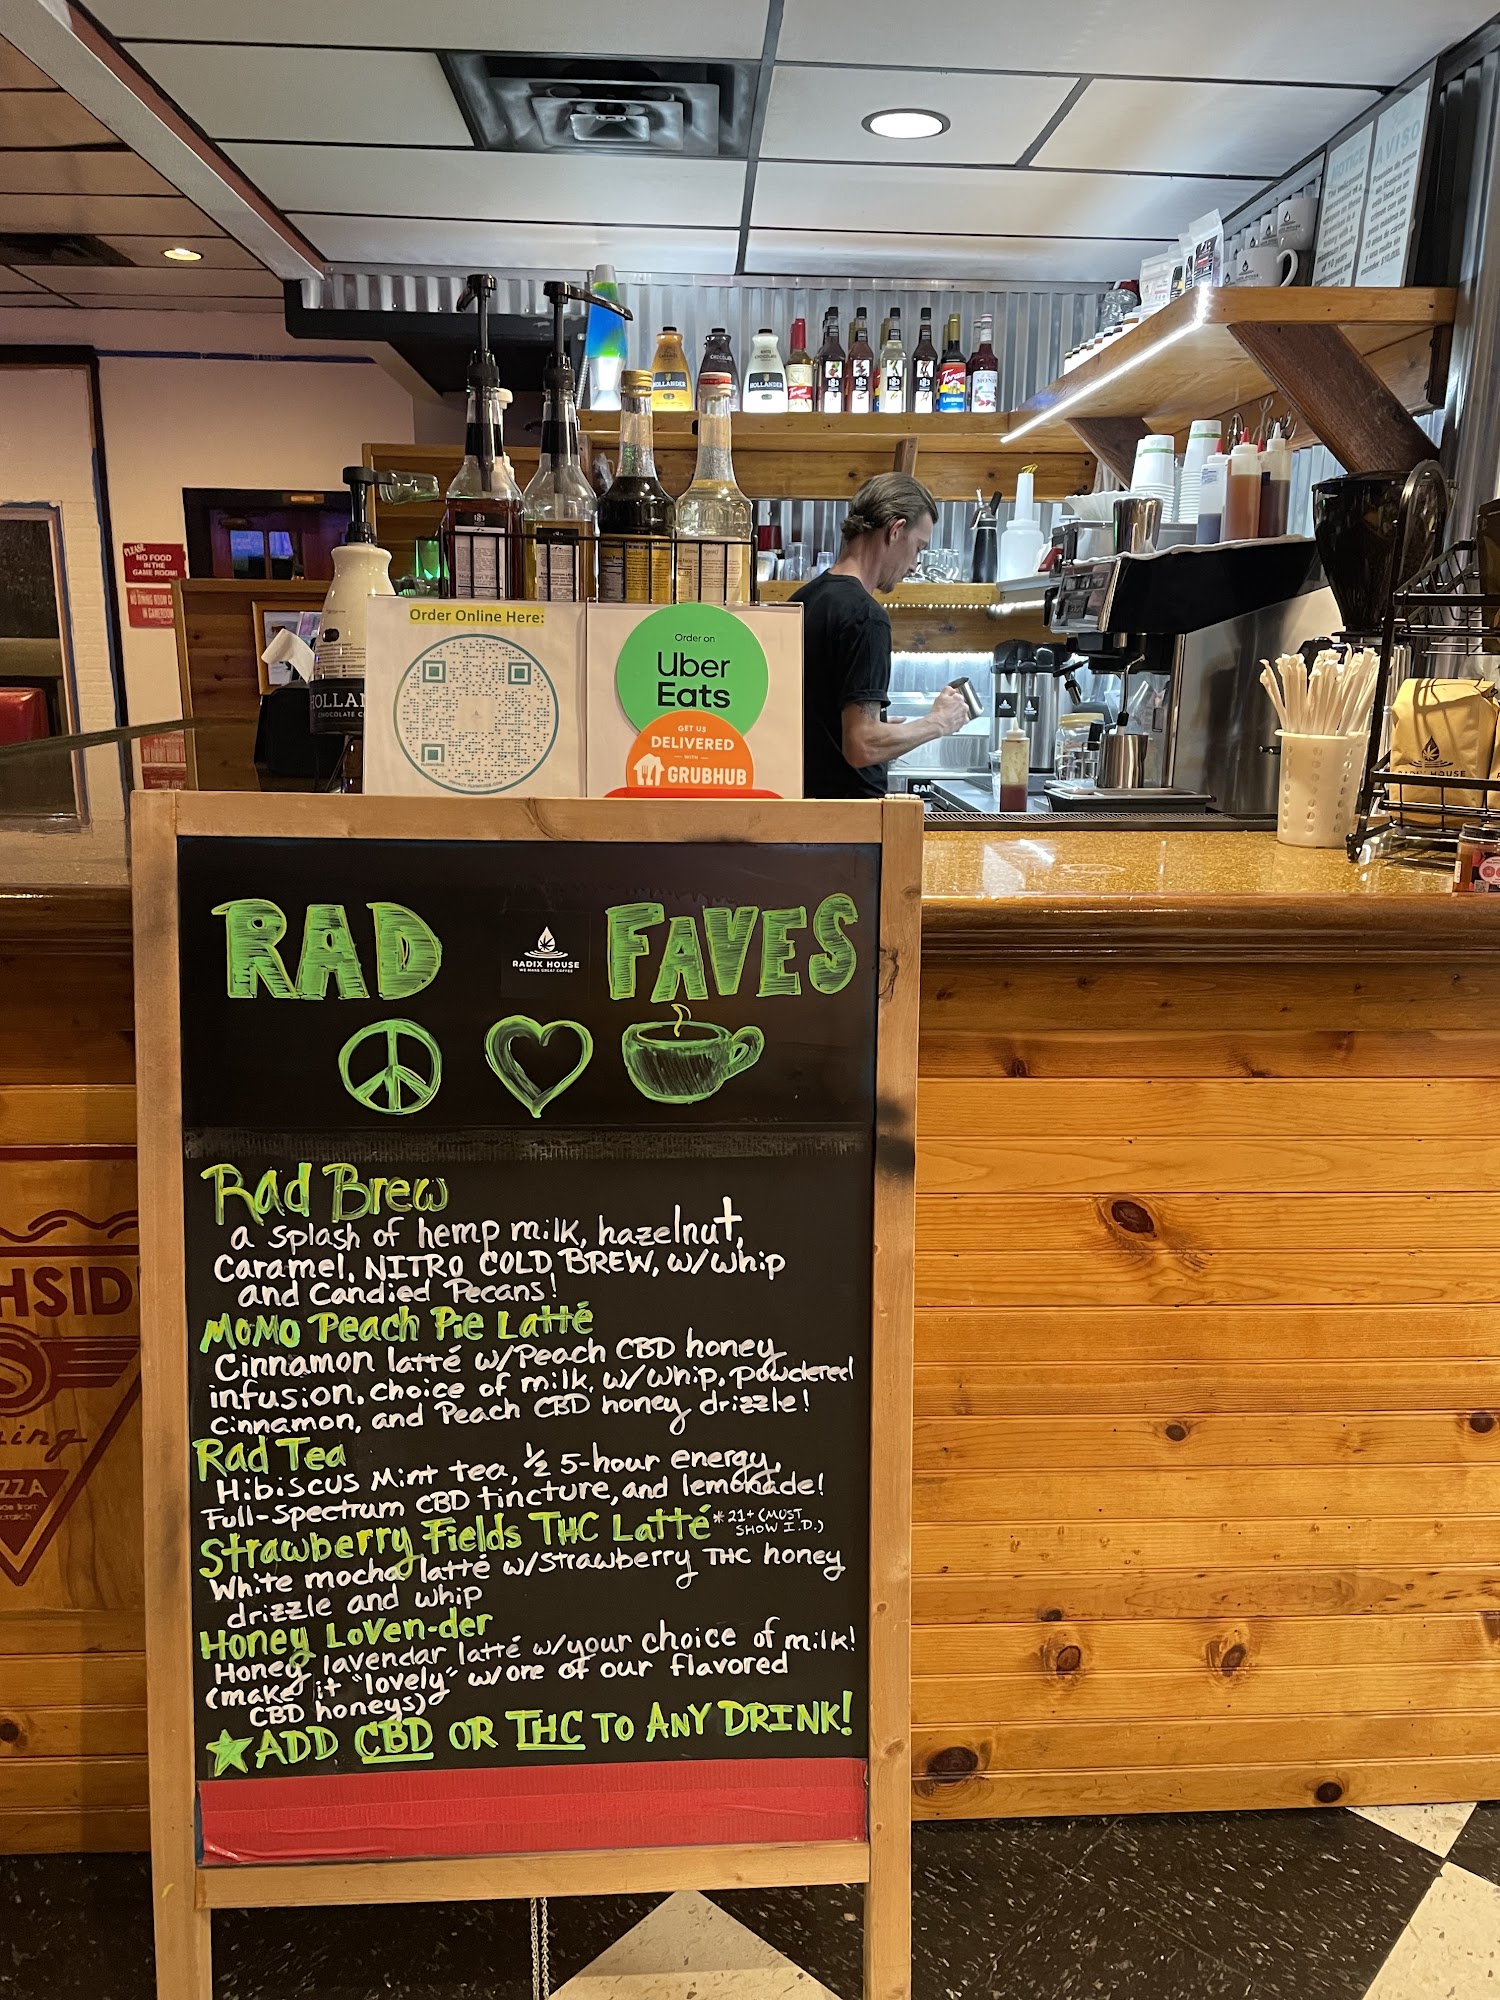 NOTICE
AVISO
PLEASE
NO FOOD
IN THE
GAME ROOM!
HOLLANDER
HOLLANDER
Torani
Torani
MONIN
Order Online Here:
Order on
Uber
Eats
GET US
DELIVERED
WITH
GRUBHUB
HOLLAN
CHOCOLATE CO
SAN
RADIX HOUSE
RAD FAVES
RADIX HOUSE
WE MAKE GREAT COFFEE
Rad Brew
a splash of hemp milk, hazelnut,
Caramel, NITRO COLD BREW, w/whip
and Candied Pecans!
MoMo Peach Pie Latté
Cinnamon latté w/Peach CBD honey
infusion, choice of milk, w/whip, powdered
cinnamon, and Peach CBD honey drizzle!
Rad Tea
Hibiscus Mint tea, ½ 5-hour energy,
Full-Spectrum CBD tincture, and lemonade!
Strawberry Fields THC Latté *21+ (MUST
SHOW I.D.)
White mocha latté w/strawberry THC honey
drizzle and whip
Honey Loven-der
Honey lavendar latté w/your choice of milk!
(make it "lovely" w/one of our flavored
CBD honeys)
ADD CBD OR THC TO ANY DRINK!
HSID
ing
ZZA